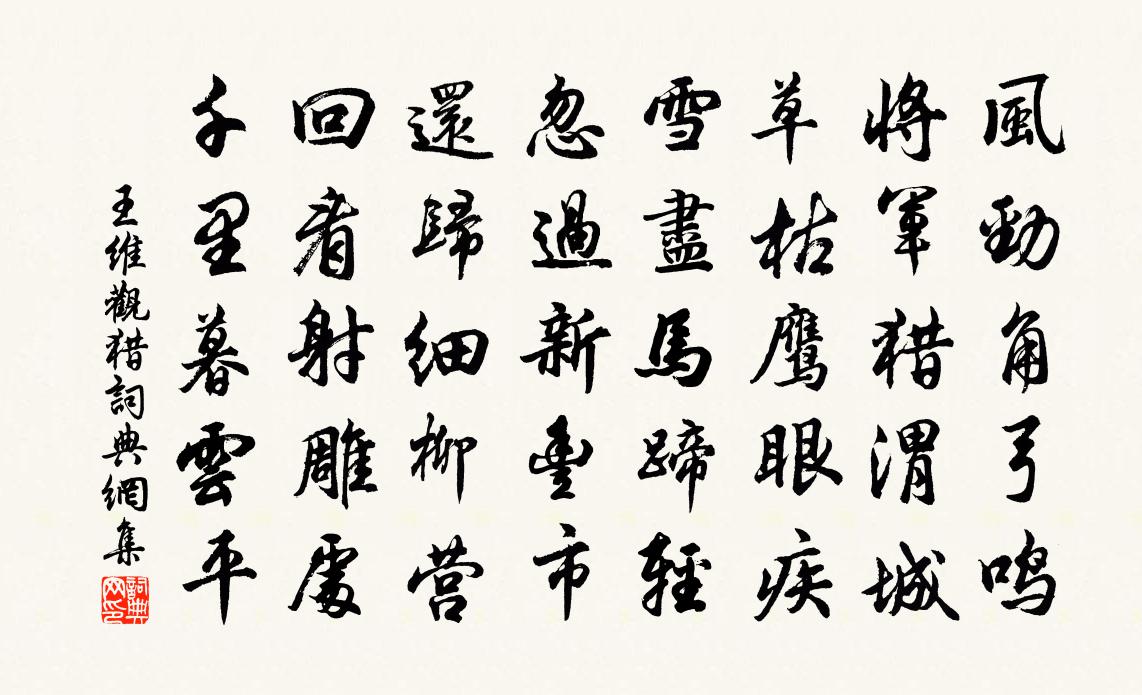 風勁角弓鳴
將軍猎渭城
草枯鹰眼疾
雪盡馬蹄輕
忽過新豊市
還歸细柳营
回看射雕處
千里暮雲平
王維觀猎詞典網集
詞典网印